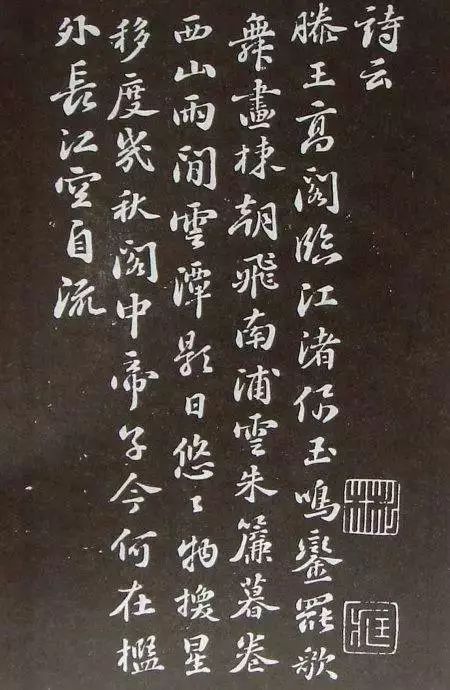 詩云
滕王高閣臨江渚佩玉鳴鑾罷歌
舞畫棟朝飛南浦雲朱簾暮卷
西山雨閒雲潭影日悠〻物換星
移度幾秋閣中帝子今何在檻
外長江空自流